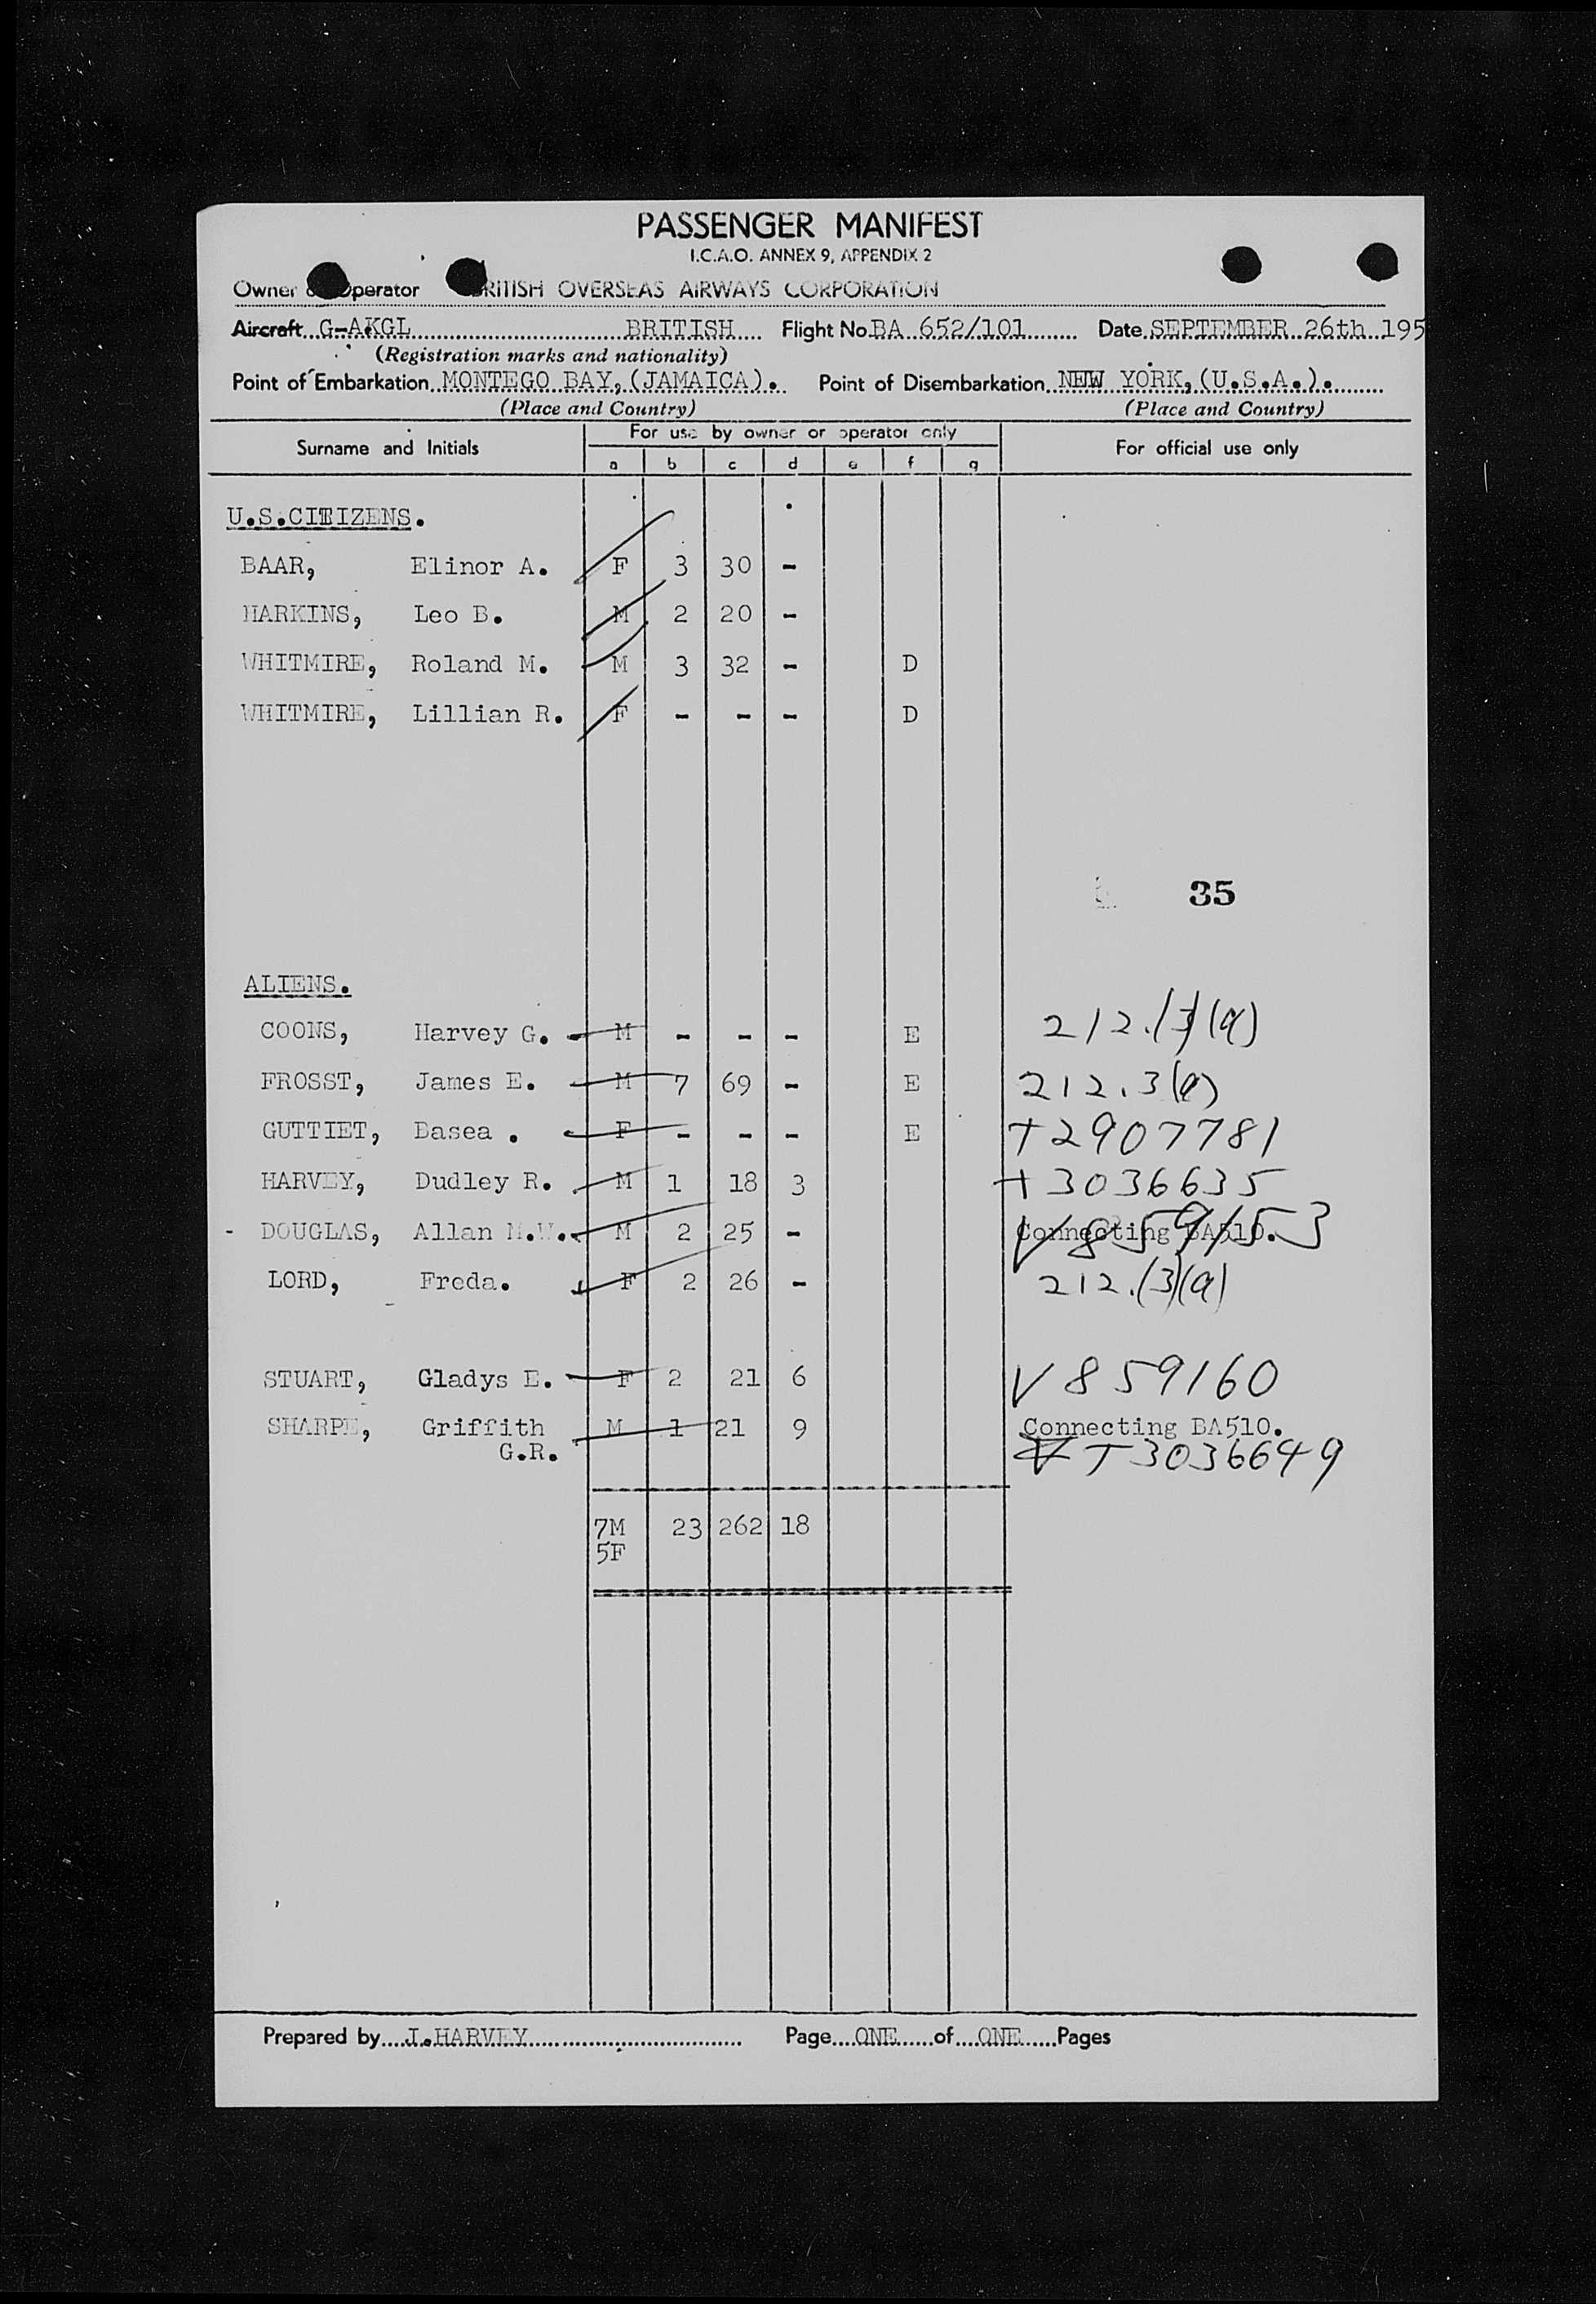 PASSENGER MANIFEST
I.C.A.O. ANNEX 9, APPENDIX 2
Owner or Operator BRITISH OVERSEAS AIRWAYS CORPORATION
Aircraft G-AKGL BRITISH Flight No. BA 652/101 Date SEPTEMBER 26th 195
(Registration marks and nationality)
Point of Embarkation MONTEGO BAY, (JAMAICA). Point of Disembarkation NEW YORK, (U.S.A.).
(Place and Country) (Place and Country)
Surname and Initials For use by owner or operator only For official use only
a b c d e f g
U.S.CITIZENS.
BAAR, Elinor A. F 3 30 -
HARKINS, Leo B. M 2 20 -
WHITMIRE, Roland M. M 3 32 - D
WHITMIRE, Lillian R. F - - - D
35
ALIENS.
COONS, Harvey G. M - - - E 212.(3)(a)
FROSST, James E. M 7 69 - E 212.3(a)
GUTTIET, Basea . F - - - E T2907781
HARVEY, Dudley R. M 1 18 3 T3036635
- DOUGLAS, Allan M.W. M 2 25 - Connecting BA510. V859153
LORD, Freda. F 2 26 - 212.(3)(a)
STUART, Gladys E. F 2 21 6 V859160
SHARPE, Griffith M 1 21 9 Connecting BA510.
G.R. V T3036649
7M 23 262 18
5F
Prepared by J.HARVEY Page ONE of ONE Pages